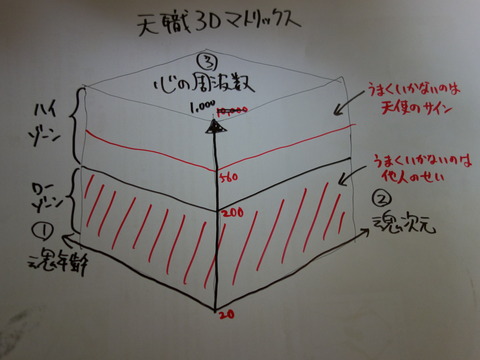 天職3Dマトリックス
③
心の周波数
1,000 10,000
ハイ
ゾーン
うまくいかないのは
天使のサイン
560
ロー
ゾーン
うまくいかないのは
他人のせい
200
①
魂年齢
②
魂次元
20